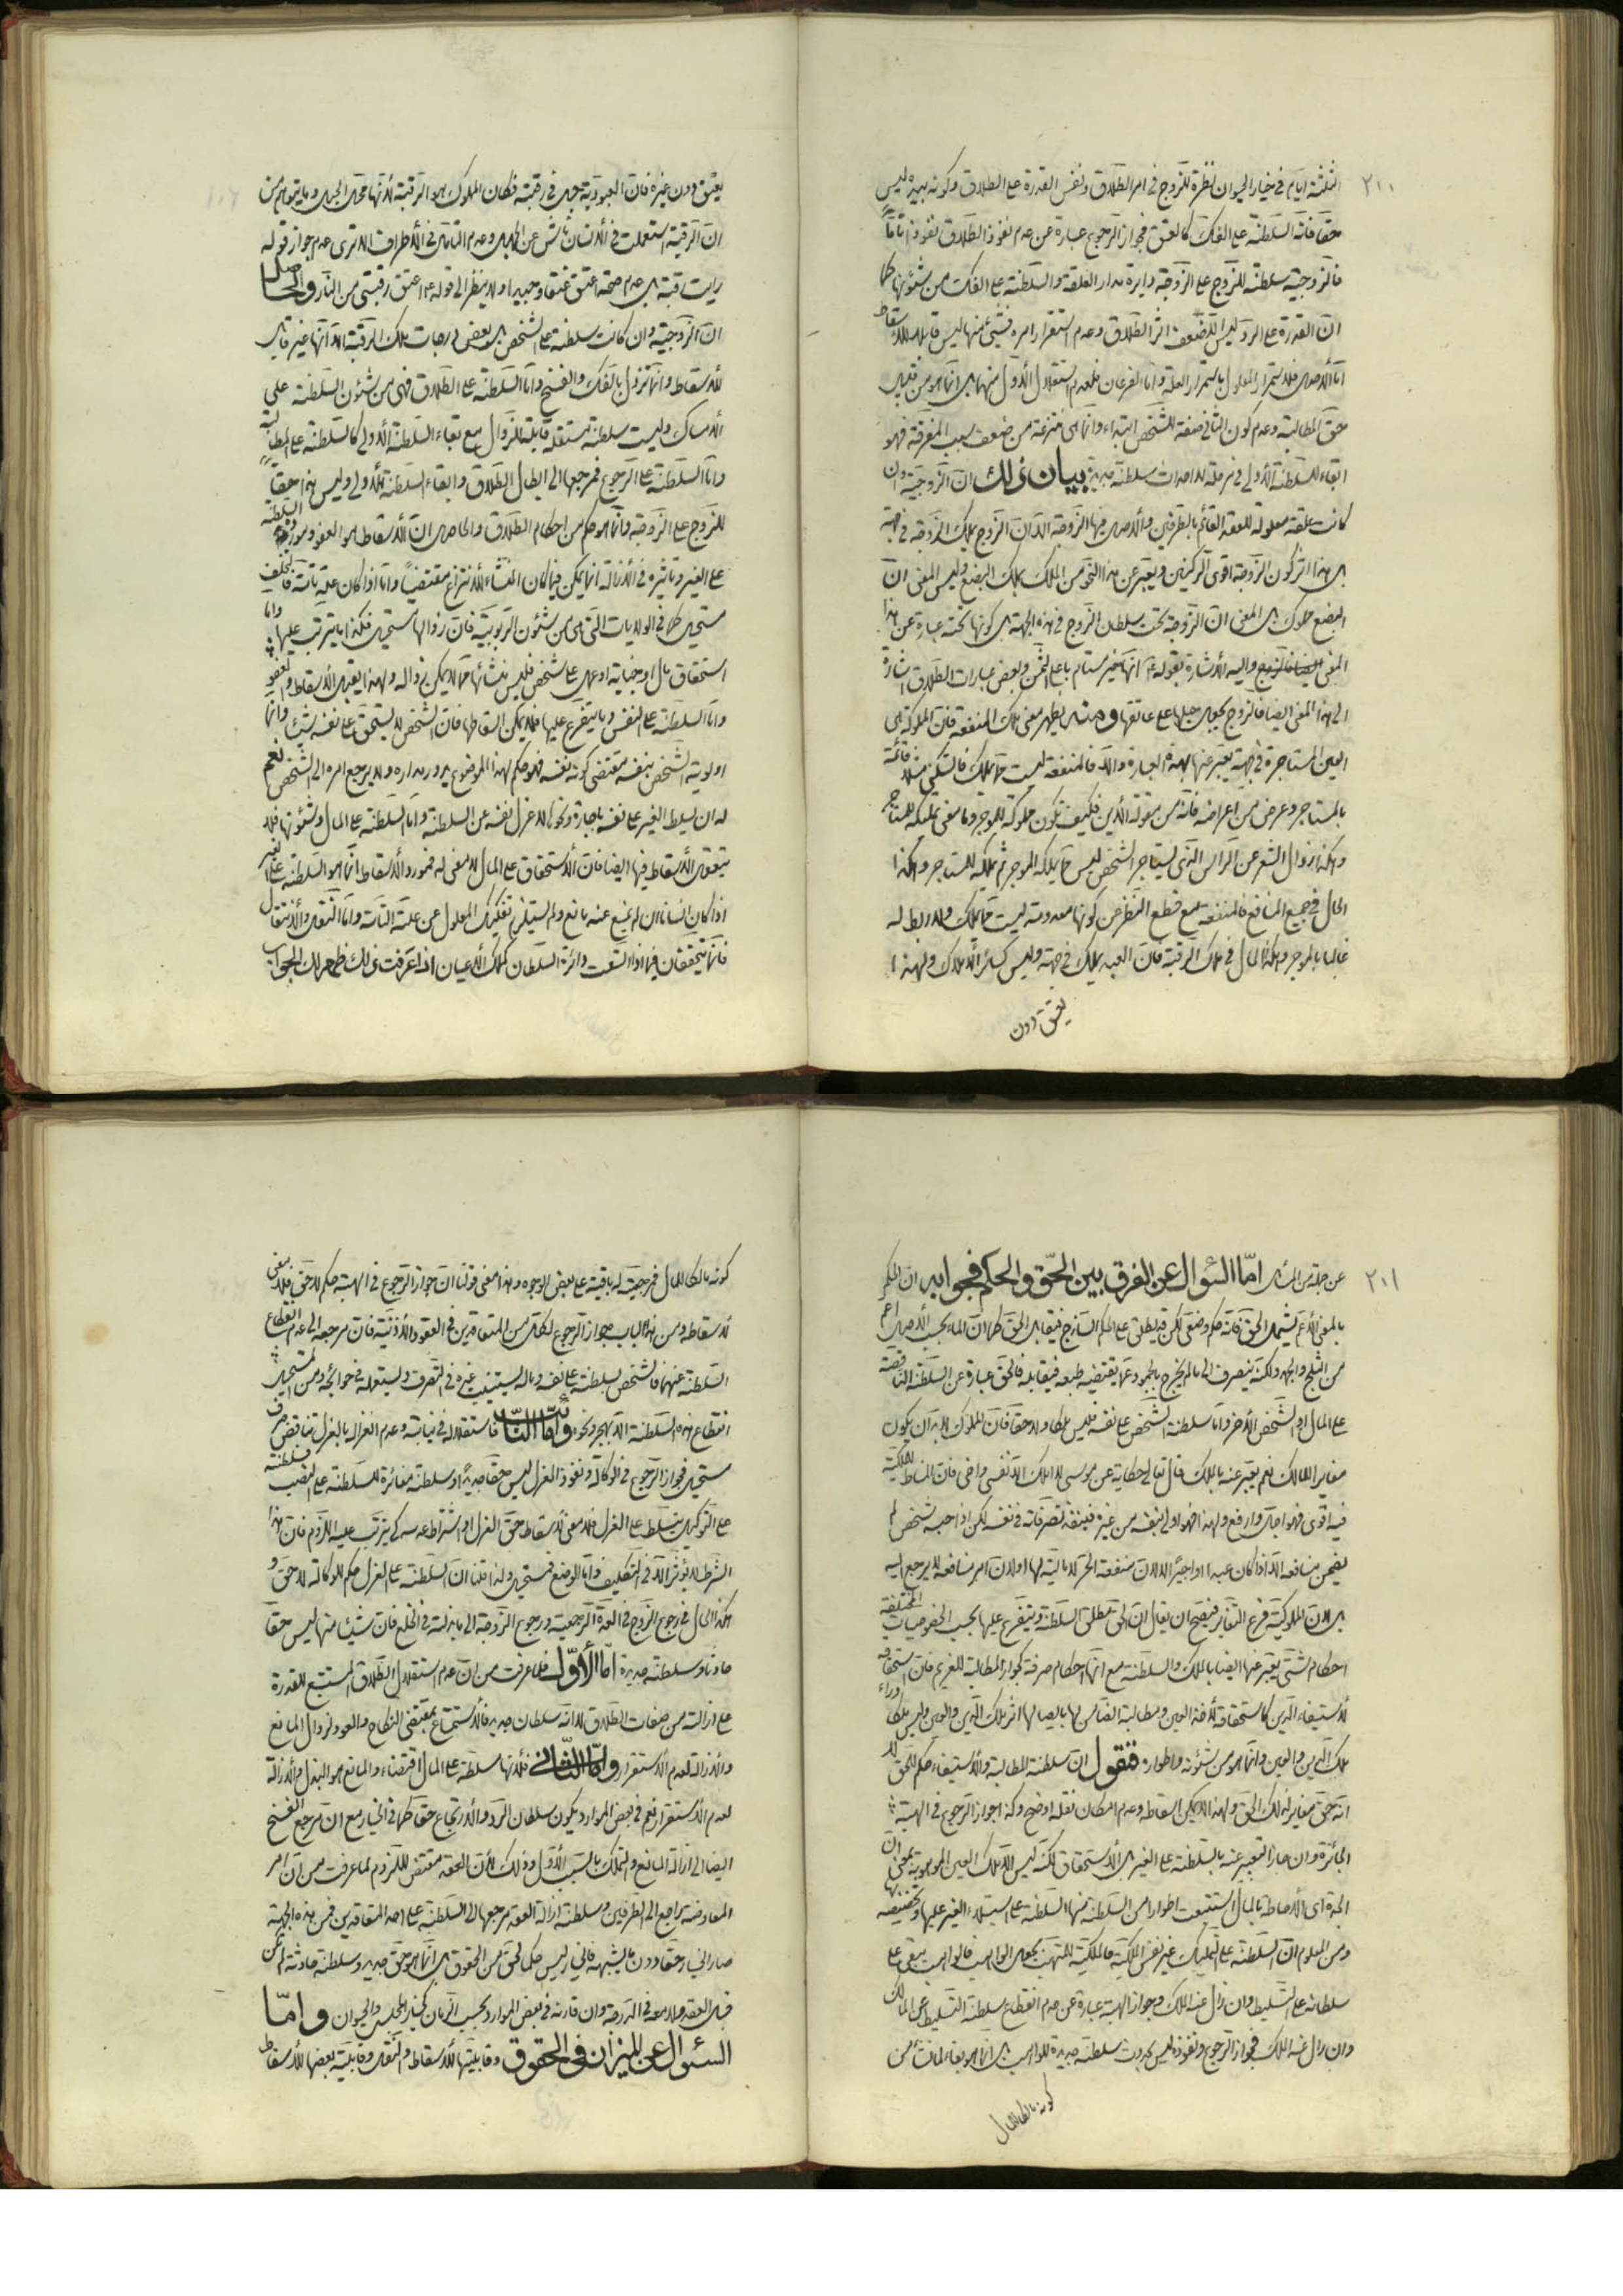 ٢٠٠
الثلثة ايام في خيار الحيوان نظرة للزوج في امر الطلاق ونفس القدرة على الطلاق وكونه بيده ليس
حقا فانه السلطنة على الفك كالعتق فجواز الرجوع عبارة عن عدم نفوذ الطلاق نفوذا تاما
فالزوجية سلطنة للزوج على الزوجة دايرة مدار العلقة والسلطنة على الفك من شئونها كما
ان القدرة على الرد ليس الا لضعف اثر الطلاق وعدم استقرار امره فشيئ منها ليس قابلا للاسقاط
اما الاصل فلاستمرار المعلول باستمرار العلة واما الفرعان فلعدم استقلال الاول منهما بل انما هو من قبيل
حق المطالبة وعدم كون الثاني صفة للشخص ابتداء وانما هي منتزعة من ضعف سبب المفرقة فهو
ابقاء للسلطنة الاولى في مرحلة لا احداث سلطنة جديدة بيان ذلك ان الزوجية وان
كانت علقة معلولة للعقد القائم بالطرفين والاصل فيها الزوجة الا ان الزوج يملك الزوجة في جهة
بل هذا اثر كون الزوجة اقوى الركنين ويعبر عن هذا النحو من الملك بملك البضع وليس المعنى ان
البضع مملوك بل المعنى ان الزوجة تحت سلطان الزوج في هذه الجهة بل كونها تحته عبارة عن هذا
المعنى واليه الاشارة بقوله ع انها خير مستام باعلى الثمن وبعض عبارات الطلاق اشارة
الى هذا المعنى ايضا فالزوج يجعل حبلها على عاتقها ومنه يظهر معنى ملك المنفعة فان المملوكة هي
العين المستاجرة في جهة يعبر عنها بهذه العبارة والا فالمنفعة ليست مما يملك فالسكنى مثلا قائمة
بالمستاجر وعرض من اعراضه فانه من مقولة الأين فكيف تكون مملوكة للموجر وما معنى تمليكه للمستاجر
وهكذا زوال الشعر عن الراس الذى يستاجر الشخص ليس مما يملكه الموجر ثم يملكه للمستاجر وهكذا
الحال في جميع المنافع فالمنفعة مع قطع النظر عن كونها معدومة ليست مما يملك ولا ربط له
غالبا بالموجر وهكذا الحال في ملك الرقبة فان العبد يملك في جهة وليس كسائر الاملاك ولهذا
يعتق دون
يعتق دون غيره فان العبودية حبل في رقبته فكان المملوك هو الرقبة لانها محل الحبل وما يتوهم من
ان الرقبة استعملت في الانسان ناش عن الجهل وعدم التامل في الاطراف الا ترى عدم جواز قوله
رايت رقبة بل عدم صحة اعتق عنقا وجيدا ولا ينظر الى قوله ع اعتق رقبتي من النار والحاصل
ان الزوجية وان كانت سلطنة على الشخص بل بعض درجات ملك الرقبة الا انها غير قابل
للاسقاط وانما تزول بالفك والفسخ واما السلطنة على الطلاق فهي من شئون السلطنة على
الامساك وليست سلطنة مستقلة قابلة للزوال مع بقاء السلطنة الاولى كالسلطنة على المطالبة
واما السلطنة على الرجوع فمرجعها الى ابطال الطلاق وابقاء السلطنة الاولى وليس هذا حقا
للزوج على الزوجة وانما هو حكم من احكام الطلاق والحاصل ان الاسقاط هو العفو ومورده السلطنة
على الغير وتاثيره في الازالة انما يمكن فيما كان المنشاء للانتزاع مقتضيا واما اذا كان علة تامة فالتخلف
مستحيل كما في الولايات التى هي من شئون الربوبية فان زوالها مستحيل فكذا ما يترتب عليها واما
استحقاق مال او جناية او عمل على شخص فليس منشائها مما لا يمكن زواله ولهذا يقبل الاسقاط والعفو
واما السلطنة على النفس وما يتفرع عليها فلا يمكن اسقاطها فان الشخص لا يستحق على نفسه شيئا وانما
اولوية الشخص بنفسه مقتضى كونه نفسه فهو حكم لهذا الموضوع يدور مداره ولا يرجع امره الى الشخص نعم
له ان يسلط الغير على نفسه باجارة ونحوها لا عزل نفسه عن السلطنة واما السلطنة على المال وشئونها فلا
يتعقل الاسقاط فيها ايضا فان الاستحقاق على المال لا معنى له فمورد الاسقاط انما هو السلطنة على الغير
اذا كان انسانا ان لم يمنع عنه مانع ولم يستلزم تفكيك المعلول عن علته التامة واما النقل والانتقال
فانما يتحققان فيما اذا اتسعت دائرة السلطان كملك الاعيان اذا عرفت ذلك ظهر لك الجواب
٢٠١
عن جملة من المسائل اما السئوال عن الفرق بين الحق والحكم فجوابه ان الحكم
بالمعنى الاعم يشمل الحق فانه حكم وضعى لكن قد يطلق على الحكم الساذج فيقابل الحق كما ان الماء بحسب الاصل اعم
من الثلج والجمد ولكنه ينصرف الى ما لم يخرج بالجمود عما يقتضيه طبعه فيقابله فالحق عبارة عن السلطنة الناقصة
على المال او الشخص الآخر واما سلطنة الشخص على نفسه فليس ملكا ولا حقا فان المملوك لابد ان يكون
مغايرا للمالك نعم يعبر عنه بالملك قال تعالى حكاية عن موسى لا املك الا نفسى واخى فان المناط للملكية
فيه اقوى فهو اجل وارفع ولهذا فهو اولى بنفسه من غيره فينفذ تصرفاته في نفسه لكن اذا حبسه شخص لم
يضمن منافعه الا اذا كان عبدا او اجيرا لا لان منفعة الحر لا مالية لها او لان امر منافعه لا يرجع اليه
بل لان المملوكية فرع التغاير فيصح ان يقال ان الحق مطلق السلطنة ويتفرع عليها بحسب الخصوصيات المختلفة
احكام شتى يعبر عنها ايضا بالملك والسلطنة مع انها احكام صرفة كجواز المطالبة للغريم فان استحقاقه
لاستيفاء الدين كاستحقاقه لاخذ العين ومطالبة الضامن لها بايصالها اثر ملك الدين والعين وليس ملكا وراء
ملك الدين والعين وانما هو من شئونه واطواره فنقول ان سلطنة المطالبة والاستيفاء حكم للحق لا
انه حق مغاير لذلك الحق ولهذا لا يمكن اسقاطه وعدم امكان نقله اوضح وكذا جواز الرجوع في الهبة
الجائزة وان جاز التعبير عنه بالسلطنة على الغير بل الاستحقاق لكنه ليس الا ملك العين الموهوبة بمعنى ان
الجدة اى الاحاطة بالمال استتبعت اطوارا من السلطنة منها السلطنة على استيلاء الغير عليها وتخصيصه بها
ومن المعلوم ان السلطنة على التمليك غير نفس الملكية فالملكية للمتهب بجعل الواهب فالواهب يبقى على
سلطانه على التسليط وان زال عنه الملك وجواز الهبة عبارة عن عدم انقطاع سلطنة التسليط عن المالك
وان زال عنه الملك فجواز الرجوع ونفوذه ليس بحدوث سلطنة جديدة للواهب بل انما هو بقاء لما نشأ من
كونه مالكا للمال
كونه مالكا للمال فمرجعيته له باقية على بعض الوجوه وهذا معنى قولنا ان جواز الرجوع في الهبة حكم لا حق فلا معنى
لاسقاطه ومن هذا الباب جواز الرجوع لكل من المتعاقدين في العقود الاذنية فان مرجعه الى عدم انقطاع
السلطنة عنهما فالشخص بسلطنته على نفسه وماله يستنيب غيره في التصرف ويستعمله في حوائجه ومن المستحيل
انقطاع هذه السلطنة الا بحجر ونحوه واما النائب فاستقلاله في نيابته وعدم انعزاله بالعزل تناقض صرف
مستحيل فجواز الرجوع في الوكالة ونفوذ العزل ليس حقا جديدا او سلطنة مغائرة للسلطنة على النصب فسلطنته
على التوكيل يتسلط على العزل فلا معنى لاسقاط حق العزل او اشتراط عدمه كى يترتب عليه اللزوم فان هذا
الشرط لا يؤثر الا في التكليف واما الوضع فمستحيل ولذا قلنا ان السلطنة على العزل حكم للوكالة لا حق و
هكذا الحال في رجوع الزوج في العدة الرجعية ورجوع الزوجة الى ما بذلته في الخلع فان شيئا منها ليس حقا
حادثا وسلطنة جديدة اما الأول فلما عرفت من ان عدم استقلال الطلاق المستتبع للقدرة
على ازالته من صفات الطلاق لا انه سلطان جديد فالاستمتاع بمقتضى النكاح والعود لزوال المانع
والازالة لعدم الاستقرار واما الثانى فلانها سلطنة على المال اقتضاء والمانع هو البذل والازالة
لعدم الاستقرار نعم في بعض الموارد يكون سلطان الرد والارتجاع حقا كما في الخيار مع ان مرجع الفسخ
ايضا الى ازالة المانع والتملك بالسبب الاول وذلك لان العقد مقتض للزوم لما عرفت من ان امر
المعاوضة راجع الى الطرفين وسلطنة ازالة العقد مرجعها الى السلطنة على احد المتعاقدين فمن هذه الجهة
صار الخيار حقا دون ما يشبهه فالخيار ليس حكما لحق من الحقوق بل انما هو حق جديد وسلطنة حادثة لم تكن
قبل العقد ولا معه في الدرجة وان قارنه في بعض الموارد بحسب الزمان كخيار المجلس والحيوان واما
السئوال عن الميزان في الحقوق وقابليتها للاسقاط والنقل وقابلية بعضها للاسقاط